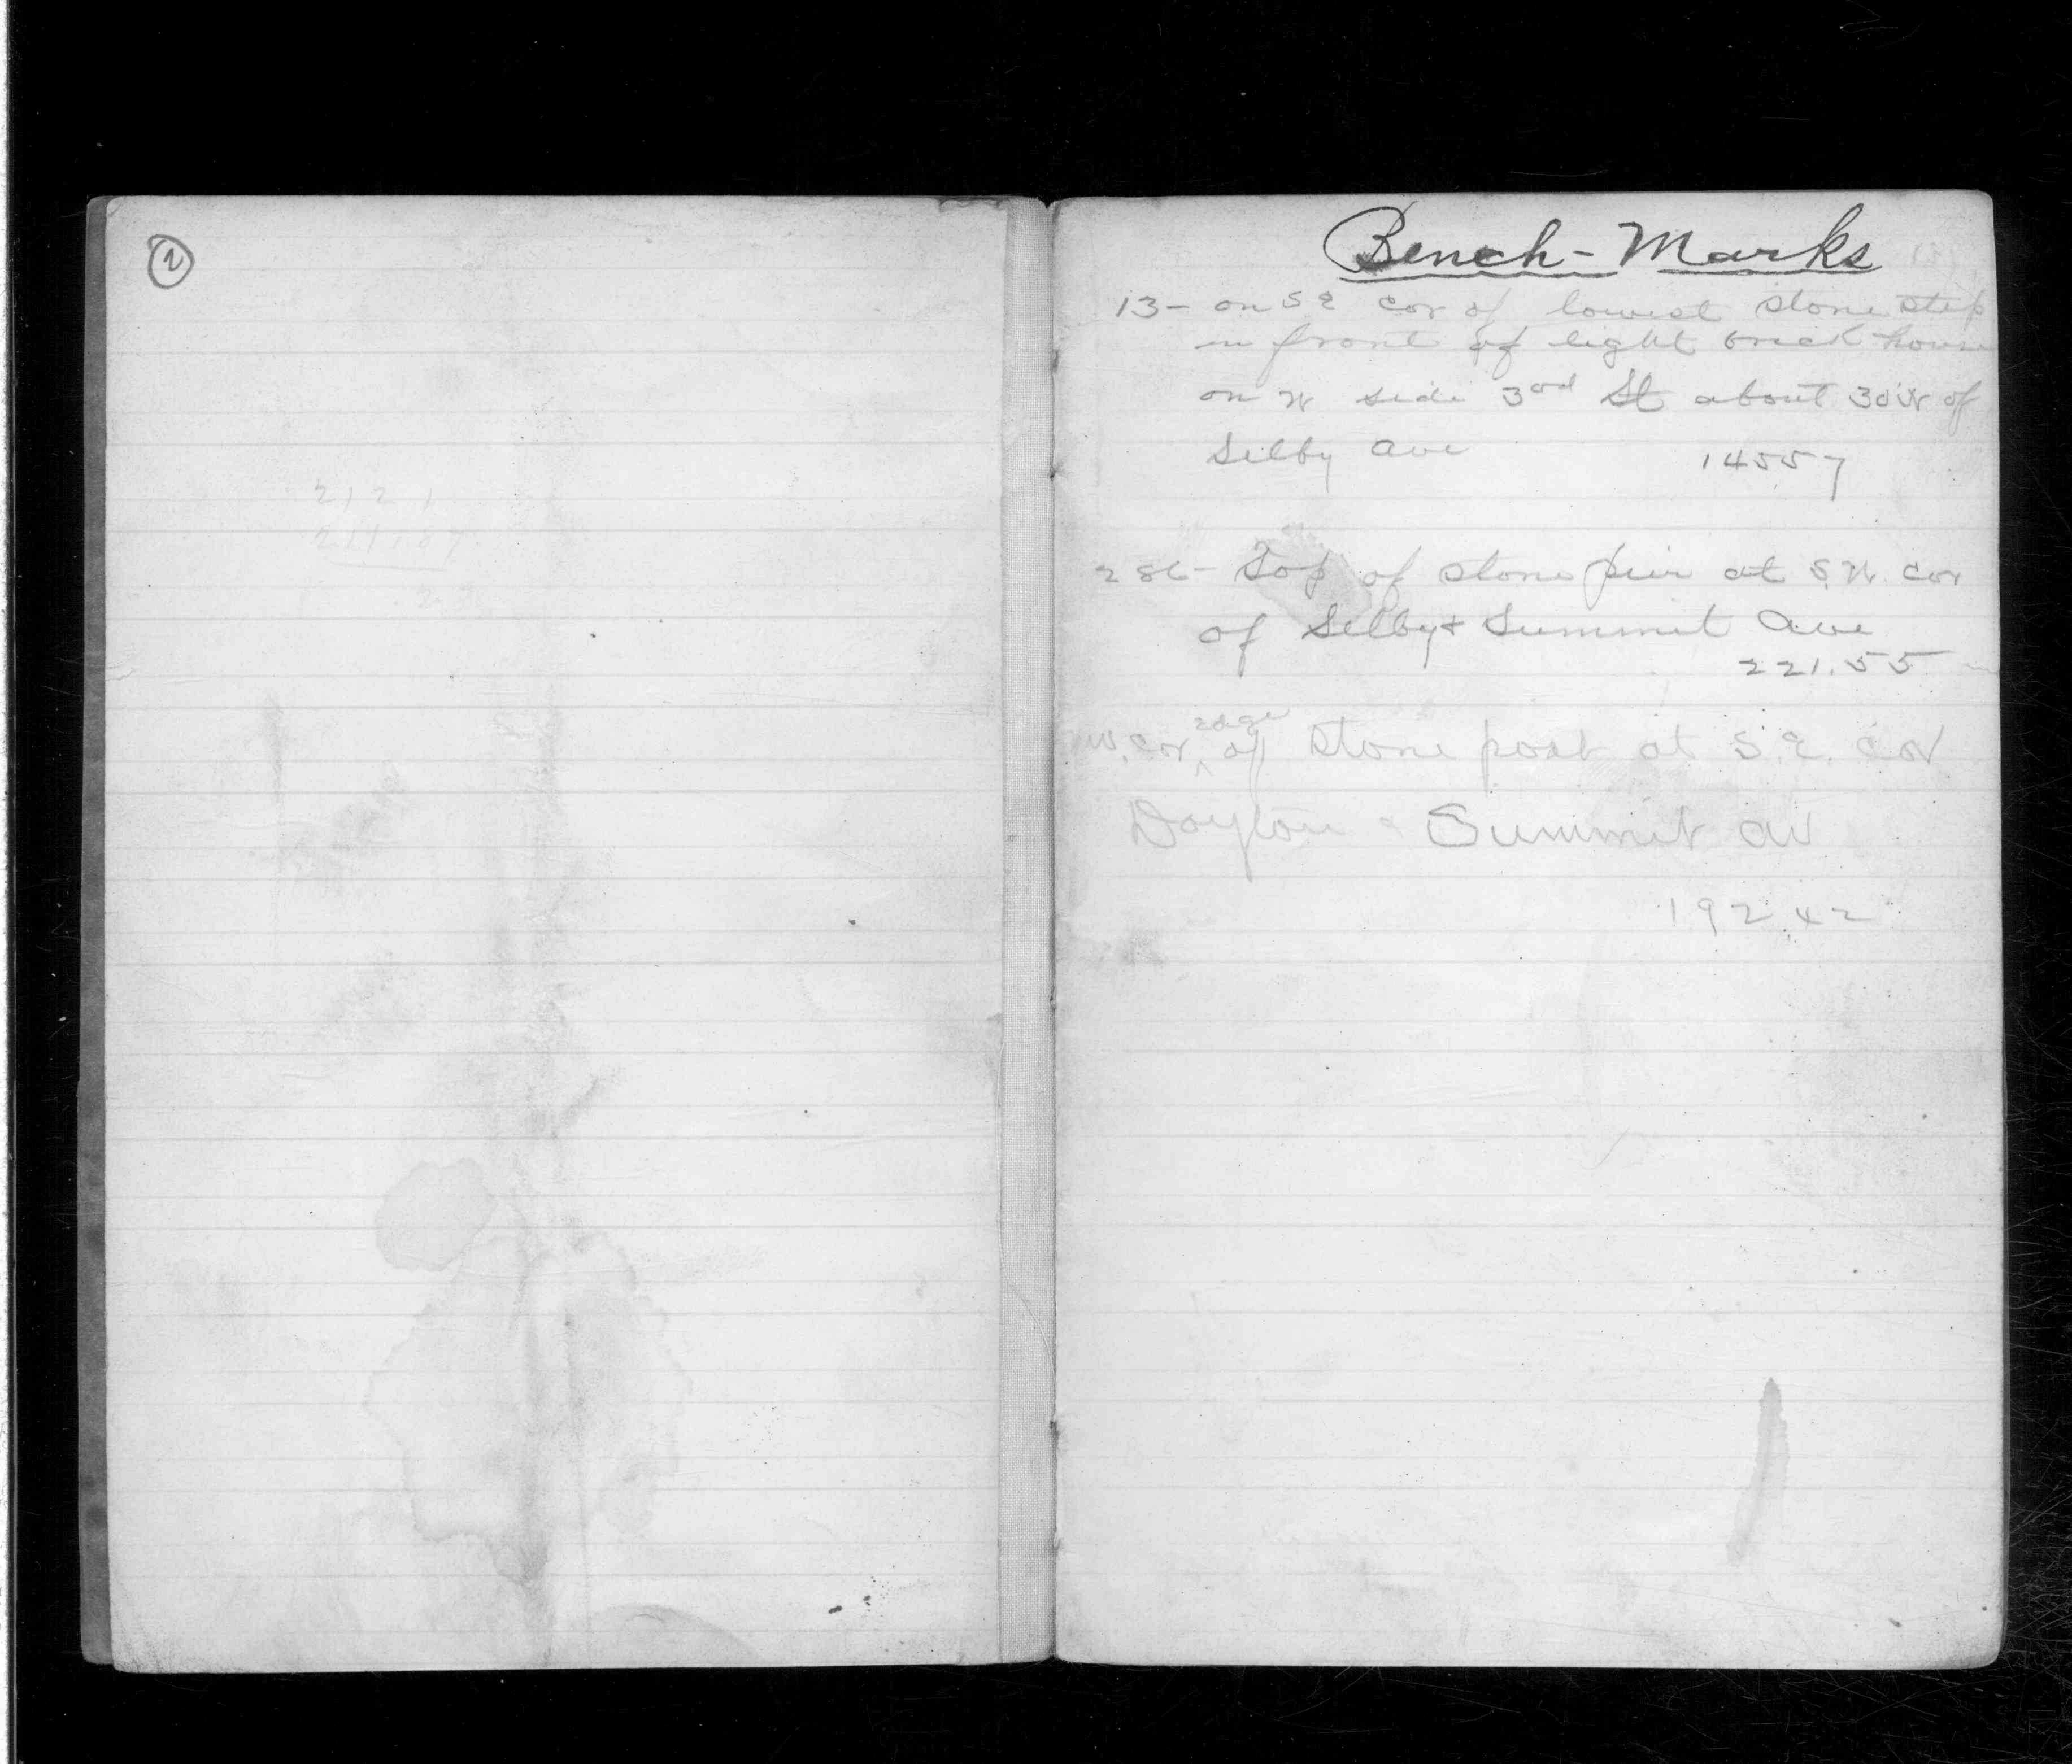 2
2121
211.07
Bench-Marks
13- on S E cor of lowest stone step
in front of light brick house
on N side 3rd St about 30 W of
Selby Ave 145.57
286- Top of stone pier at S.W. cor
of Selby & Summit Ave
221.55
W. Cor. edge of stone post at S.E. cor
Dayton & Summit av
192.42